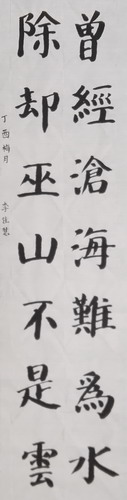 曾經滄海難爲水
除却巫山不是雲
丁酉梅月 李佳慧